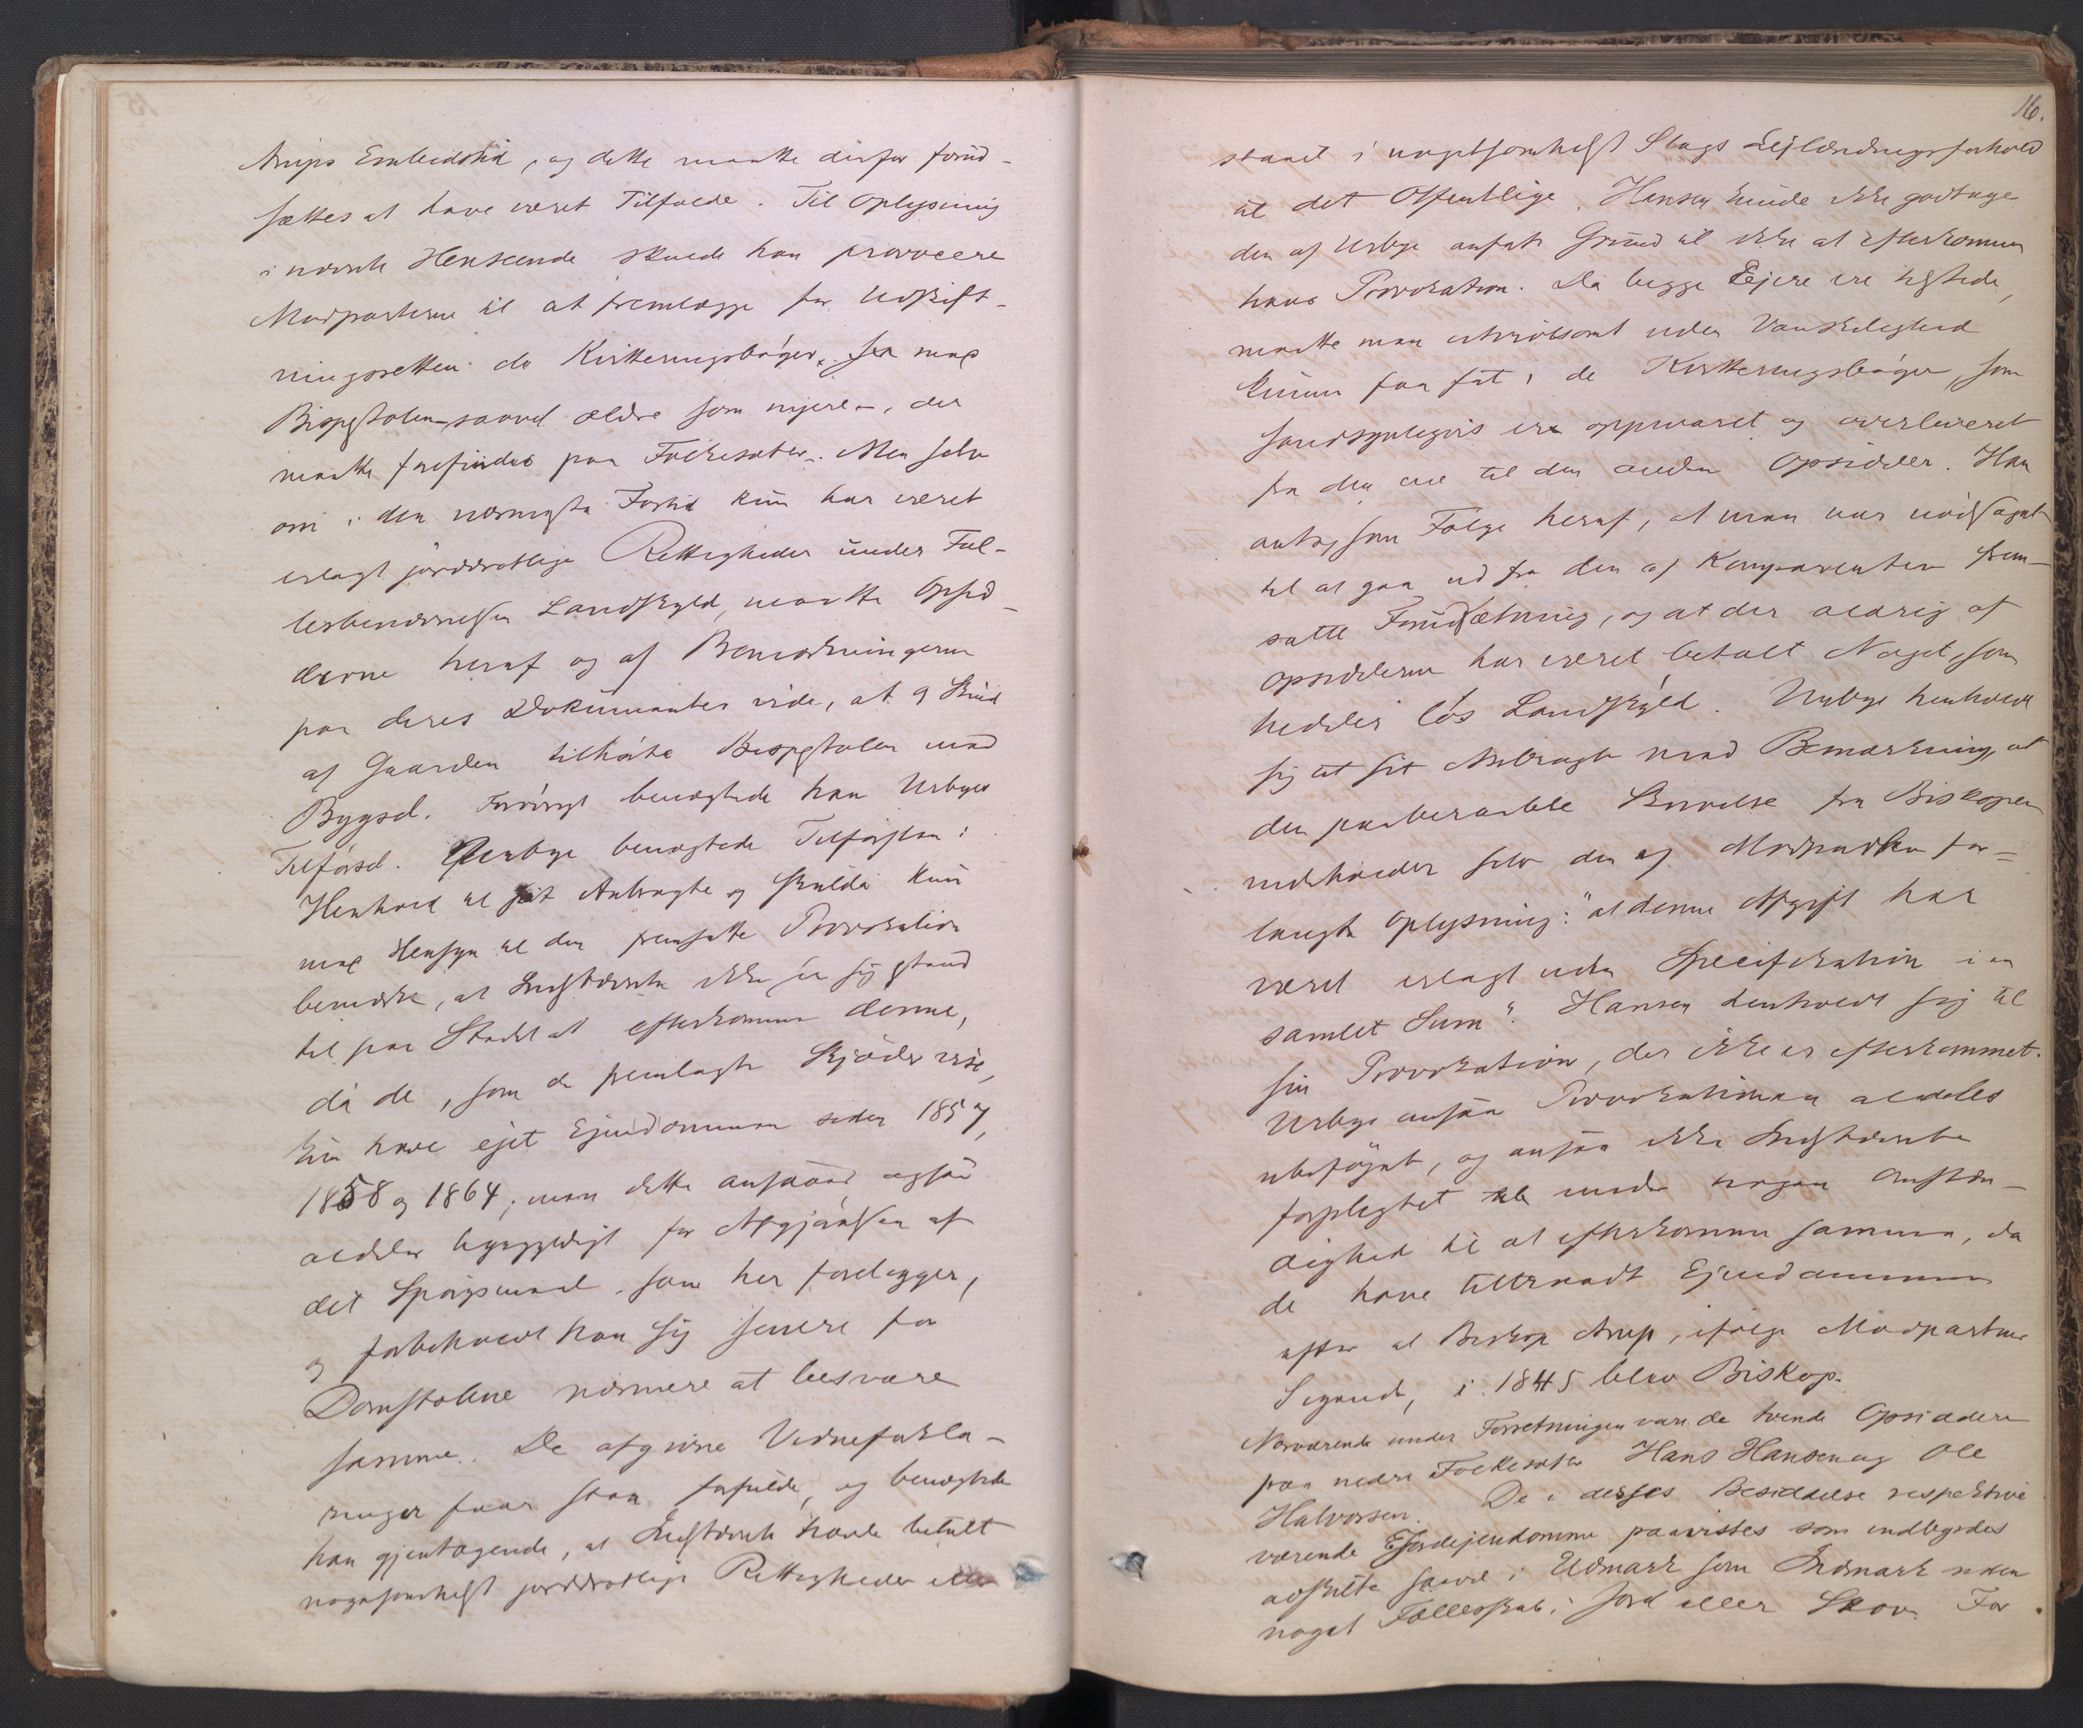 Arups Embedstid, og dette maatte derfor forud-
sættes at have været Tilfælde. Til Oplysning
i nævnte Henseende skulde han provocere
Modparterne til at fremlægge for Udskift-
ningsretten de Kvitteringsbøger, med
Bispestolen saavel ældre som nyere, der
maatte forefindes paa Foldesæter. Men selv
om i den nærmeste Fortid kun har været
erlagt jorddrotlige Rettigheder under Fæl-
lesbenævnelsen Landskyld, maatte Opsid-
derne heraf og af Bemærkningerne
paa deres Dokumenter vide, at 9 Skind
af Gaarden tilhørte Bispestolen med
Bygsel. Forøvrigt benægtede han Urbyes
Tilførsel. Urbye benægtede Tilførslen i
Henhold til sit Anbragte og skulde kun
med Hensyn til den fremsatte Provokation
bemærke, at Indstævnte ikke er sig istand
til paa Stedet at efterkomme denne,
da de, som de fremlagte Skjøder vise,
kun have ejet Ejendommen siden 1857,
1858 og 1864; men dette ansaaes ogsaa
aldeles ligegyldigt for Afgjørelsen af
det Spørgsmaal, som her foreligger,
og forbeholdt han sig senere for
Domstolene nærmere at besvare
samme. De afgivne Vidneforkla-
ringer faar staa forfulde, og benægtede
han gjentagende, at Indstævnte havde betalt
nogensomhelst jorddrotlige Rettigheder eller
16.
staaet i nogetsomhelst Slags Lejlændingsforhold
til det Offentlige. Hansen kunde ikke godtage
den af Urbye anførte Grund til ikke at efterkomme
hans Provokation. Da begge Ejere ere tilstede,
maatte man utvivlsomt uden Vanskelighed
kunne faa fat i de Kvitteringsbøger, som
sandsynligvis ere opbevaret og overleveret
fra den ene til den anden Opsidder. Han
antog som Følge heraf, at man var nødsaget
til at gaa ud fra den af Komparenten frem-
satte Forudsætning, og at der aldrig af
Opsidderne har været betalt Noget, som
hedder løs Landskyld. Urbye henholdt
sig til sit Anbragte med Bemærkning, at
den paaberaabte Skrivelse fra Biskopen
indeholder selv den af Modparten for-
langte Oplysning: "at denne Afgift har
været erlagt uden Specifikation i en
samlet Sum". Hansen henholdt sig til
sin Provokation, der ikke er efterkommet.
Urbye ansaa Provokationen aldeles
ubeføjet, og ansaa ikke Indstævnte
forpligtet under nogen Omstæn-
dighed til at efterkomme samme, da
de have tiltraadt Ejendommen
efter at Biskop Arup, ifølge Modpartens
Sigende, i 1845 blev Biskop.
Nærværende under Forretningen vare de tvende Opsiddere
paa nedre Foldesæter Hans Hansen og Ole
Halvorsen. De i disses Besiddelse respektive
værende Ejendomme paavistes som indbyrdes
adskilte saavel i Udmark som Indmark uden
noget Fællesskab i Jord eller Skov. For